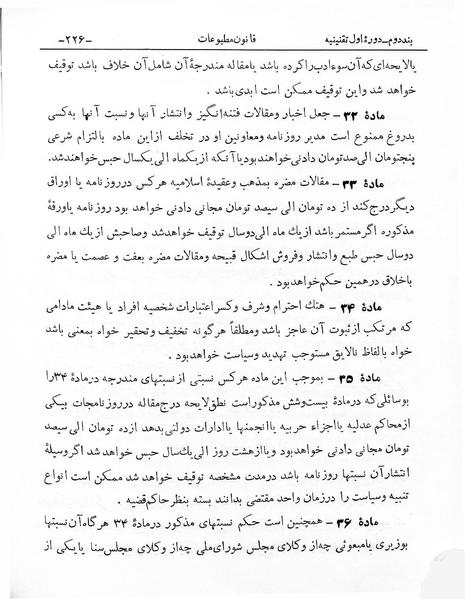 بنددوم_دورهٔ اول تقنینیه قانون مطبوعات -۲۲۶-
یالایحه‌ای که آن سوء ادب را کرده باشد یا مقاله مندرجهٔ آن شامل آن خلاف باشد توقیف
خواهد شد و این توقیف ممکن است ابدی باشد .
مادهٔ ۳۲ - جعل اخبار و مقالات فتنه‌انگیز و انتشار آنها و نسبت آنها به‌کسی
بدروغ ممنوع است مدیر روزنامه ومعاونین او در تخلف از این ماده بالتزام شرعی
پنجتومان الی صدتومان دادنی خواهند بود یا آنکه از یکماه الی یکسال حبس خواهند شد.
مادهٔ ۳۳ - مقالات مضره بمذهب وعقیدهٔ اسلامیه هرکس در روزنامه یا اوراق
دیگر درج کند از ده تومان الی سیصد تومان مجانی دادنی خواهد بود روزنامه یا ورقهٔ
مذکوره اگر مستمر باشد از یك ماه الی دو سال توقیف خواهد شد و صاحبش از یك ماه الی
دو سال حبس طبع و انتشار و فروش اشکال قبیحه ومقالات مضره بعفت و عصمت یا مضره
باخلاق در همین حکم خواهد بود .
مادهٔ ۳۴ - هتك احترام وشرف وکسر اعتبارات شخصیه افراد یا هیئت مادامی
که مرتکب از ثبوت آن عاجز باشد ومطلقاً هرگونه تخفیف وتحقیر خواه بمعنی باشد
خواه بالفاظ نالایق مستوجب تهدید وسیاست خواهد بود .
مادهٔ ۳۵ - بموجب این ماده هرکس نسبتی از نسبتهای مندرجه درمادهٔ ۳۴ را
بوسائلی که درمادهٔ بیست وشش مذکور است نطق لایحه درج مقاله در روزنامجات بیکی
از محاکم عدلیه یا اجزاء حربیه یا انجمنها یا ادارات دولتی بدهد از ده تومان الی سیصد
تومان مجانی دادنی خواهد بود و یا از هشت روز الی یك سال حبس خواهد شد اگر وسیلهٔ
انتشار آن نسبتها روزنامه باشد در مدت مشخصه توقیف خواهد شد ممکن است انواع
تنبیه وسیاست را در زمان واحد مقتضی بدانند بسته بنظر حاکم قضیه .
مادهٔ ۳۶ - همچنین است حکم نسبتهای مذکور درمادهٔ ۳۴ هرگاه آن نسبتها
بوزیری یا مبعوثی چه از وکلای مجلس شورای ملی چه از وکلای مجلس سنا یا یکی از